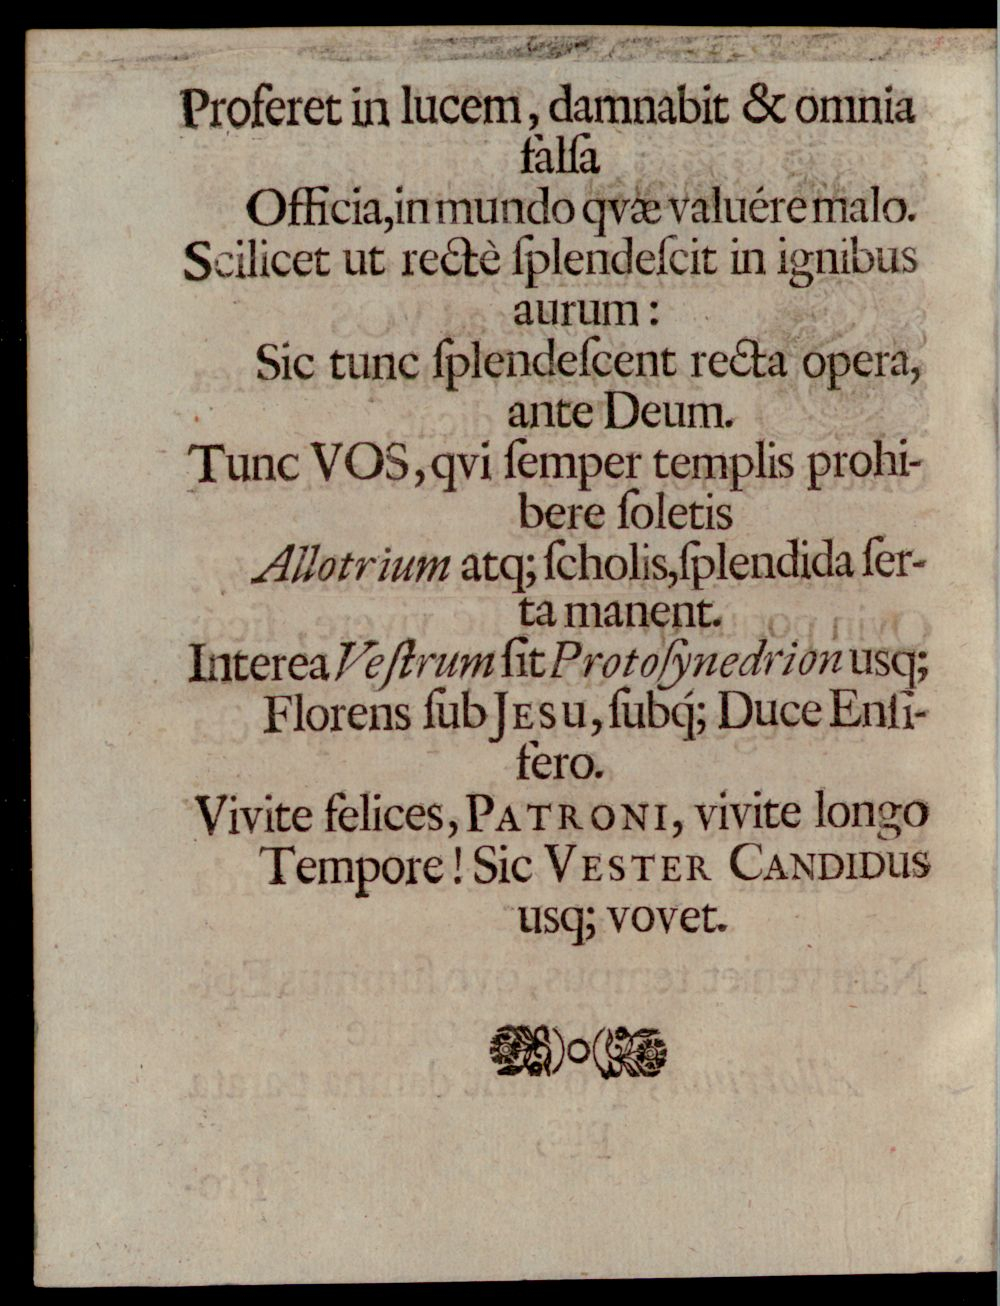 Proferet in lucem, damnabit & omnia
falſa
Officia, in mundo qvæ valuére malo.
Scilicet ut rectè ſplendeſcit in ignibus
aurum:
Sic tunc ſplendeſcent recta opera,
ante Deum.
Tunc VOS, qvi ſemper templis prohi-
bere ſoletis
Allotrium atq; ſcholis, ſplendida ſer-
ta manent.
Interea Veſtrum ſit Protoſynedrion usq;
Florens ſub JESU, ſubq́; Duce Enſi-
fero.
Vivite felices, PATRONI, vivite longo
Tempore! Sic VESTER CANDIDUS
usq; vovet.